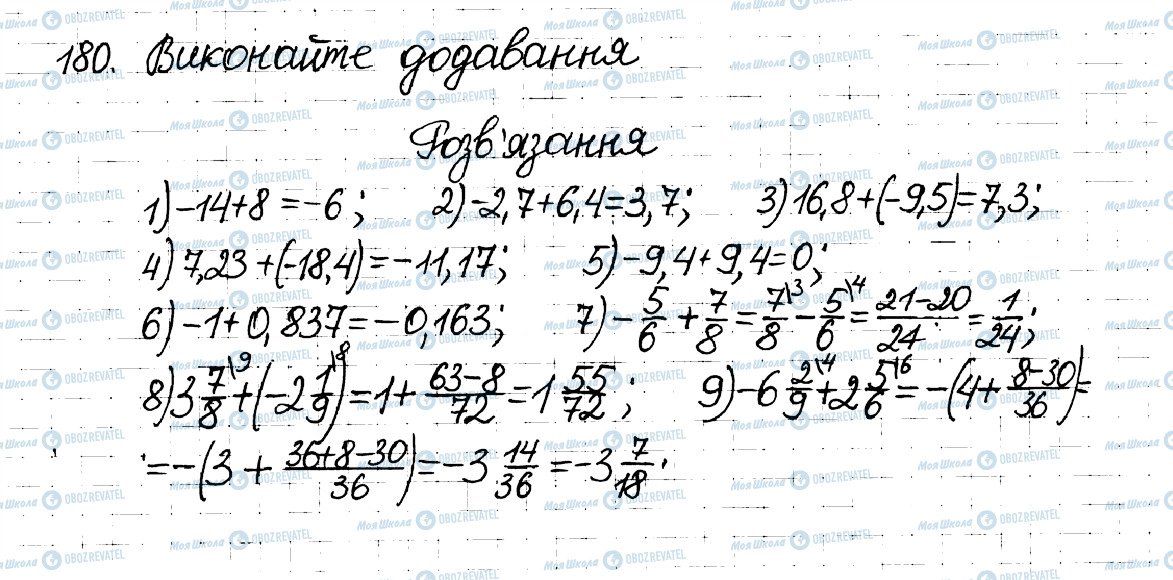 180. Виконайте додавання
Розв'язання
1) -14+8 = -6; 2) -2,7+6,4=3,7; 3) 16,8+(-9,5)=7,3;
4) 7,23+(-18,4)=-11,17; 5) -9,4+9,4=0;
6) -1+0,837=-0,163; 7) -5/6 + 7/8 = 7\3/8 - 5\4/6 = 21-20/24 = 1/24;
8) 3 7\9/8 + (-2 1\8/9) = 1 + 63-8/72 = 1 55/72; 9) -6 2\4/9 + 2 5\6/6 = -(4 + 8-30/36) =
= -(3 + 36+8-30/36) = -3 14/36 = -3 7/18.